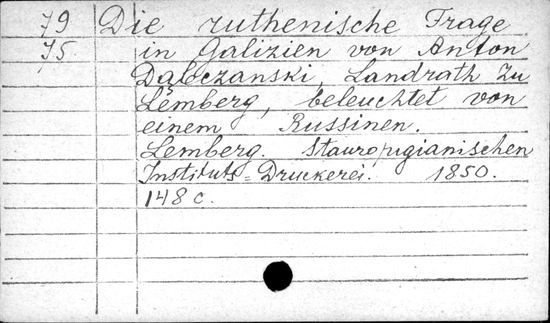 79 Die ruthenische Frage
75 in Galizien von Anton
Dabczanski, Landrath zu
Lemberg, beleuchtet von
einem Russinen.
Lemberg. Stauropigianischen
Instituts=Druckerei. 1850.
148 c.